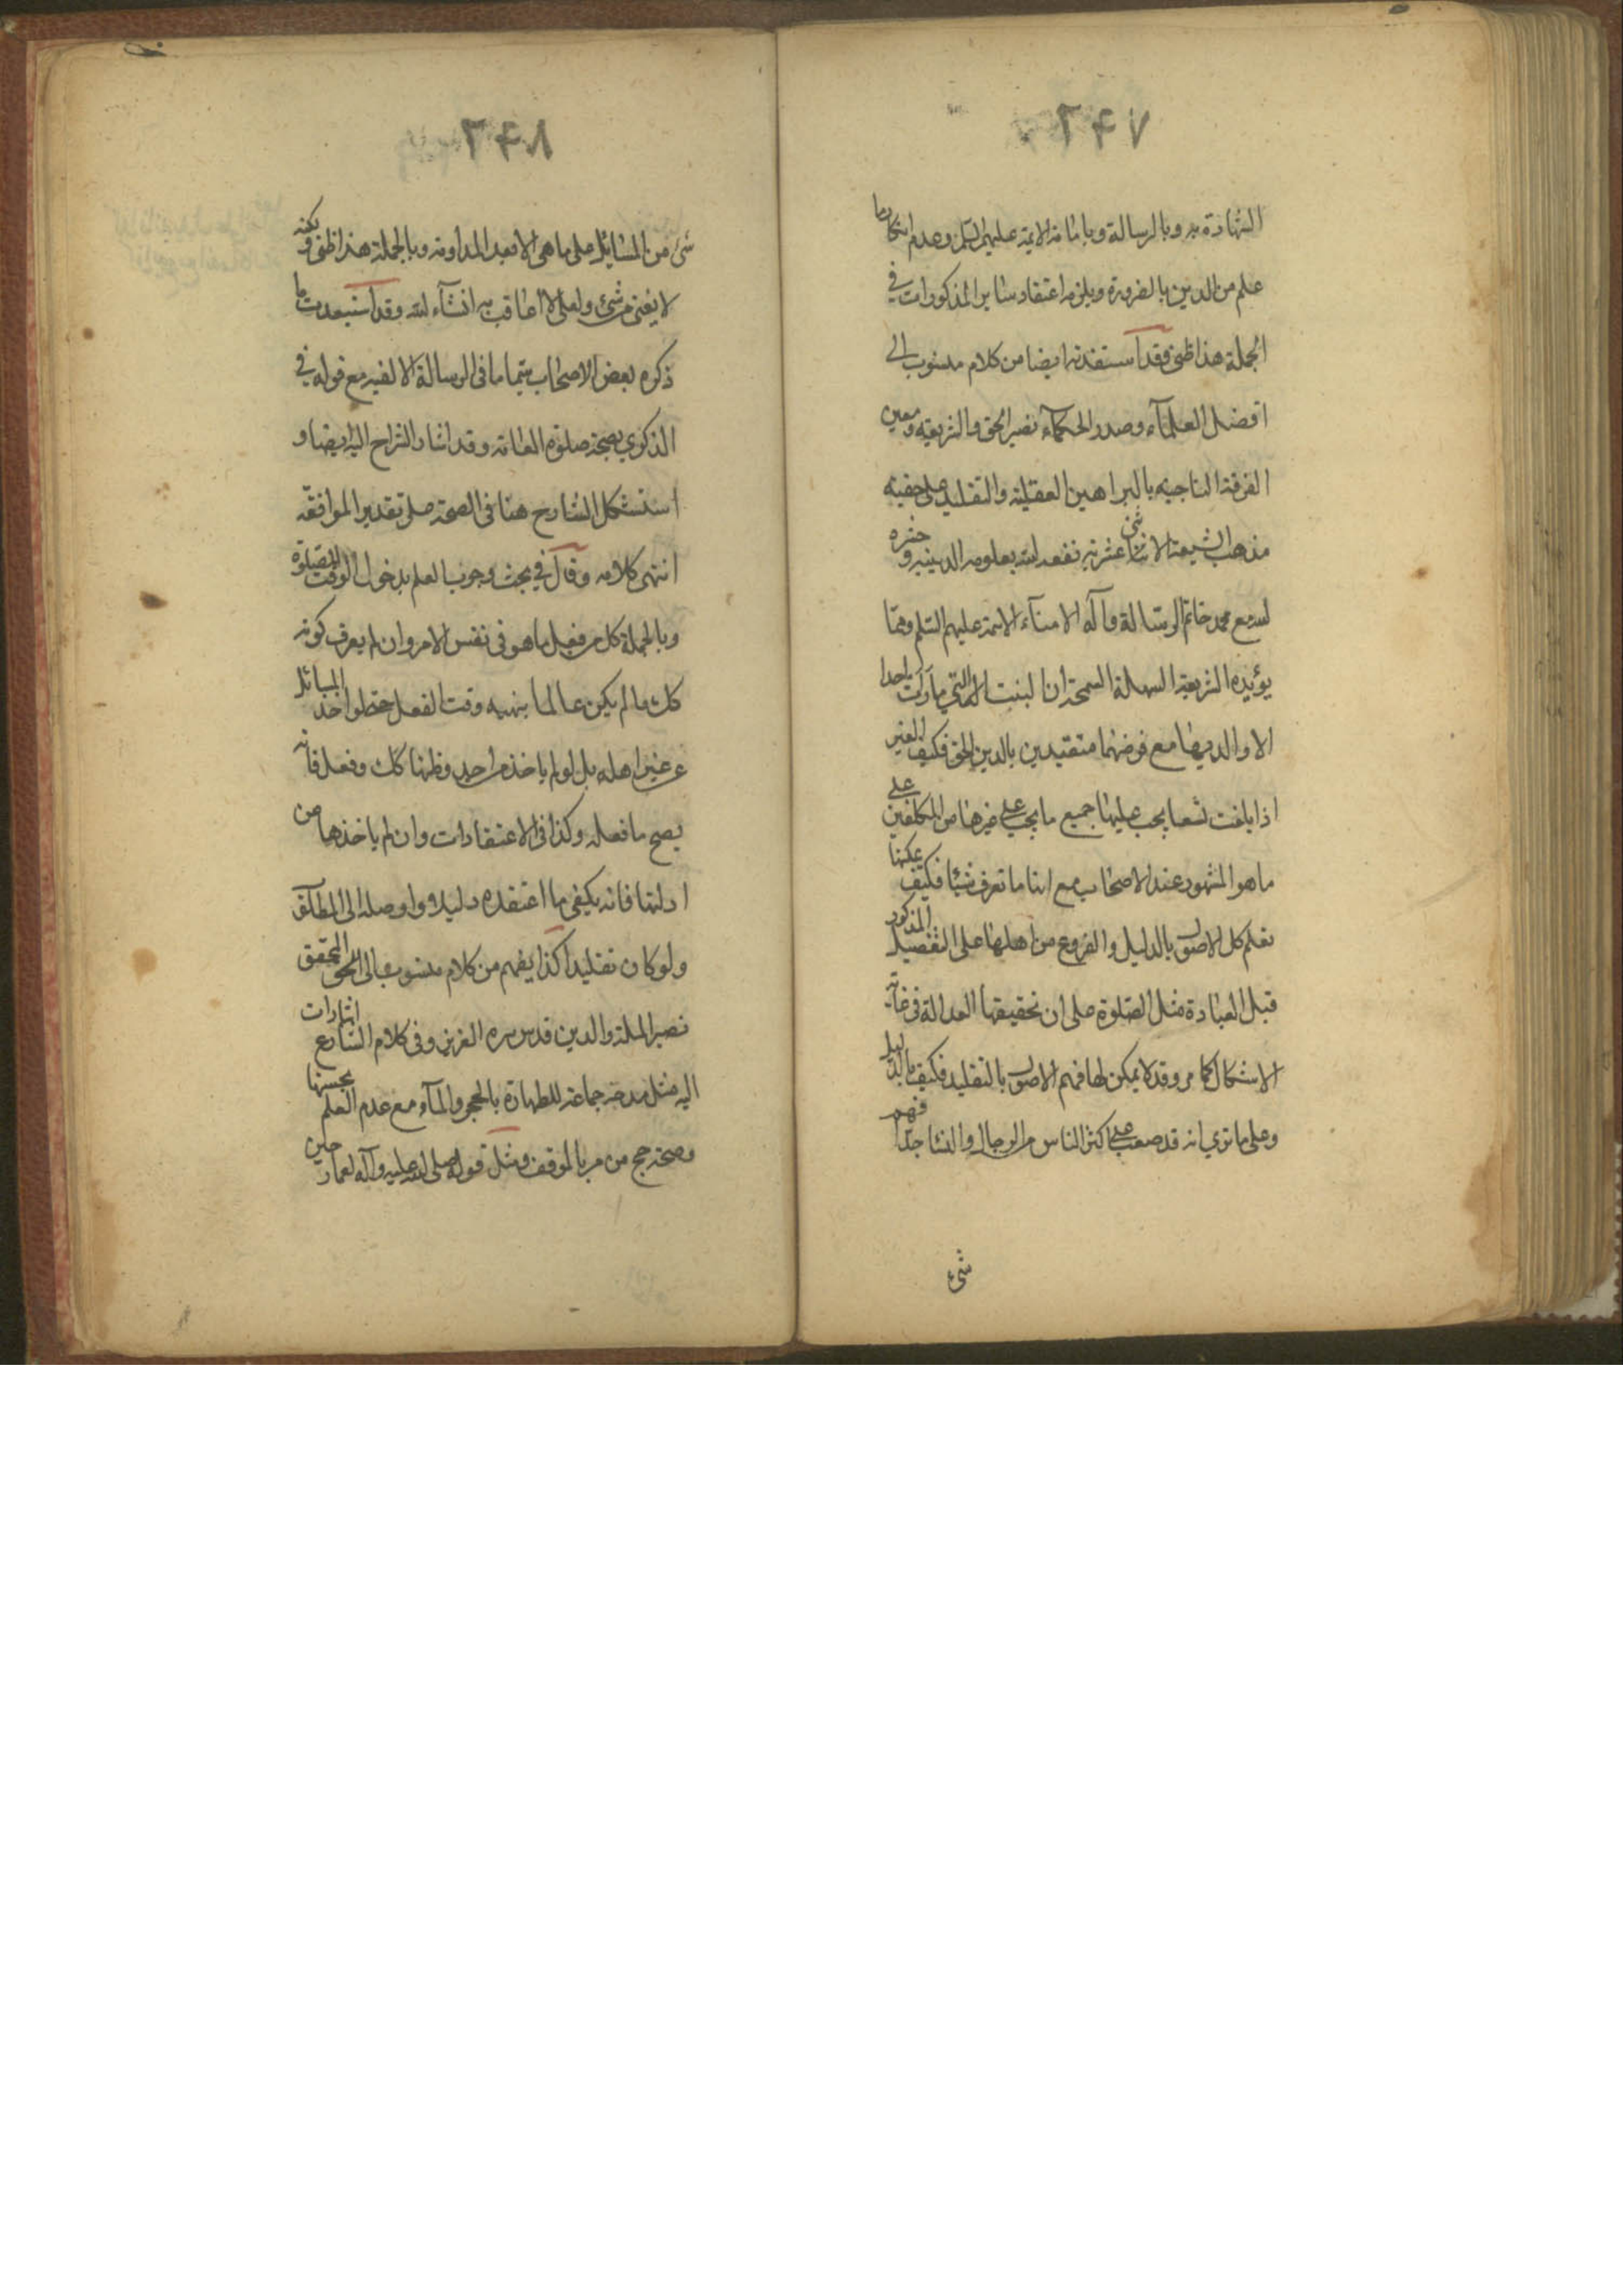 ٢٤٧
الشهادة به وبالرسالة وبامامة الائمة عليهم السلم وعدم انكار ما
علم من الدين بالضرورة ويلزمه اعتقاد ساير المذكورات في
الجملة هذا ظني وقد استفدته ايضا من كلام منسوب الى
افضل العلمآء وصدر الحكمآء نصير الحق والشريعه ومعين
الفرقة الناجيه بالبراهين العقليه والنقليه على حقيه
مذهب الشيعة الاثنى عشريه نفعه الله بعلومه الدينيه وحشره
مع محمد خاتم الرسالة وآله الامنآء الائمة عليهم السلم ومما
يؤيده الشريعة السهلة السمحة ان البنت التي ما رات احدا
الا والديها مع فرضهما متقيدين بالدين الحق فكيف الغير
اذا بلغت تسعا يجب عليها جميع ما يجب على غيرها من المكلفين على
ما هو المشهور عند الاصحاب مع انها ما تعرف شيئا فكيف يمكنها
تعلم كل الاصول بالدليل والفروع من اهلها على التفصيل المذكور
قبل العبادة مثل الصلوة على ان تحقيقها العدالة في غاية
الاشكال كما مر وقد لا يمكن لها فهم الاصول بالتقليد فكيف بالدليل
وعلى ما ترى انه قد صعب على اكثر الناس من الرجال والنسا جدا فهم
شئ
٢٤٨
شئ من المسائل على ما هي الا بعد المداومه وبالجملة هذا ظني ولكنه
لا يغني من شئ ولعلي لا اعاقب به انشآء الله وقد استبعدت ما
ذكره بعض الاصحاب سيما ما في الرسالة الالفيه مع قوله في
الذكرى بصحة صلوة العامة وقد اشار الشراح اليه ايضا و
استشكل الشارح هنا في الصحة على تقدير الموافقه
انتهى كلامه وقال في بحث وجوب العلم بدخول الوقت للصلوة
وبالجملة كل من فعل ما هو في نفس الامر وان لم يعرف كونه
كك ما لم يكن عالما بنهيه وقت الفعل حتى لو اخذ المسائل
عن غير اهله بل لو لم ياخذ من احد وظنها كك وفعل فانه
يصح ما فعله وكذا في الاعتقادات وان لم ياخذها من
ادلتها فانه يكفي ما اعتقده دليلا واوصله الى المطلق
ولو كان تقليدا كذا يفهم من كلام منسوب الى المحقق
نصير الملة والدين قدس سره العزيز وفي كلام الشارع اشارات
اليه مثل مدحه جماعة للطهارة بالحجر والمآء مع عدم العلم بحسنها
وصحة حج من مر بالموقف ومثل قوله صلى الله عليه وآله لعمار حين